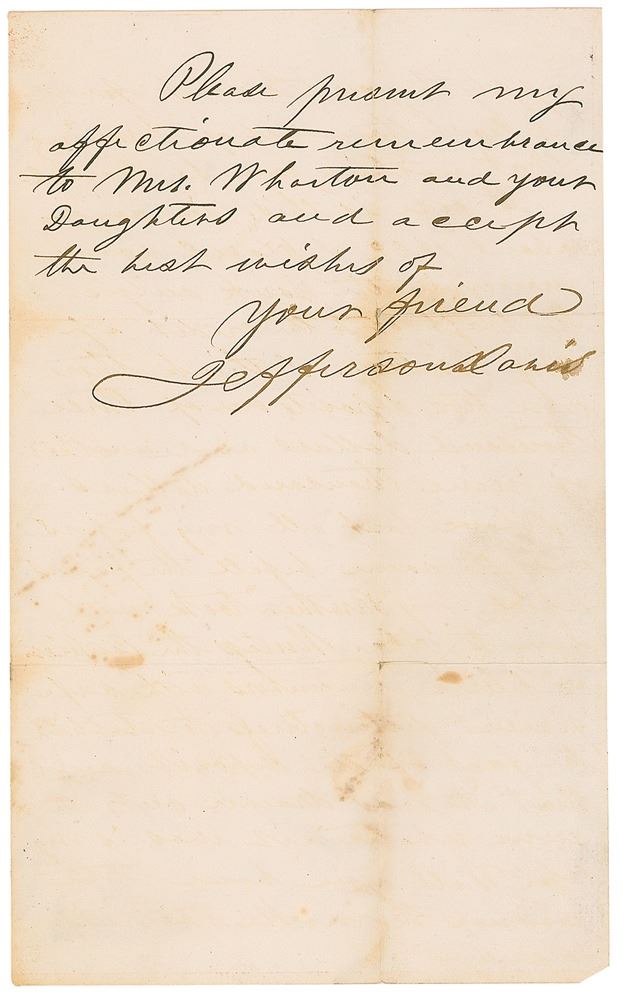 Please present my
affectionate remembrance
to Mrs. Wharton and your
Daughters and accept
the best wishes of
your friend
Jefferson Davis